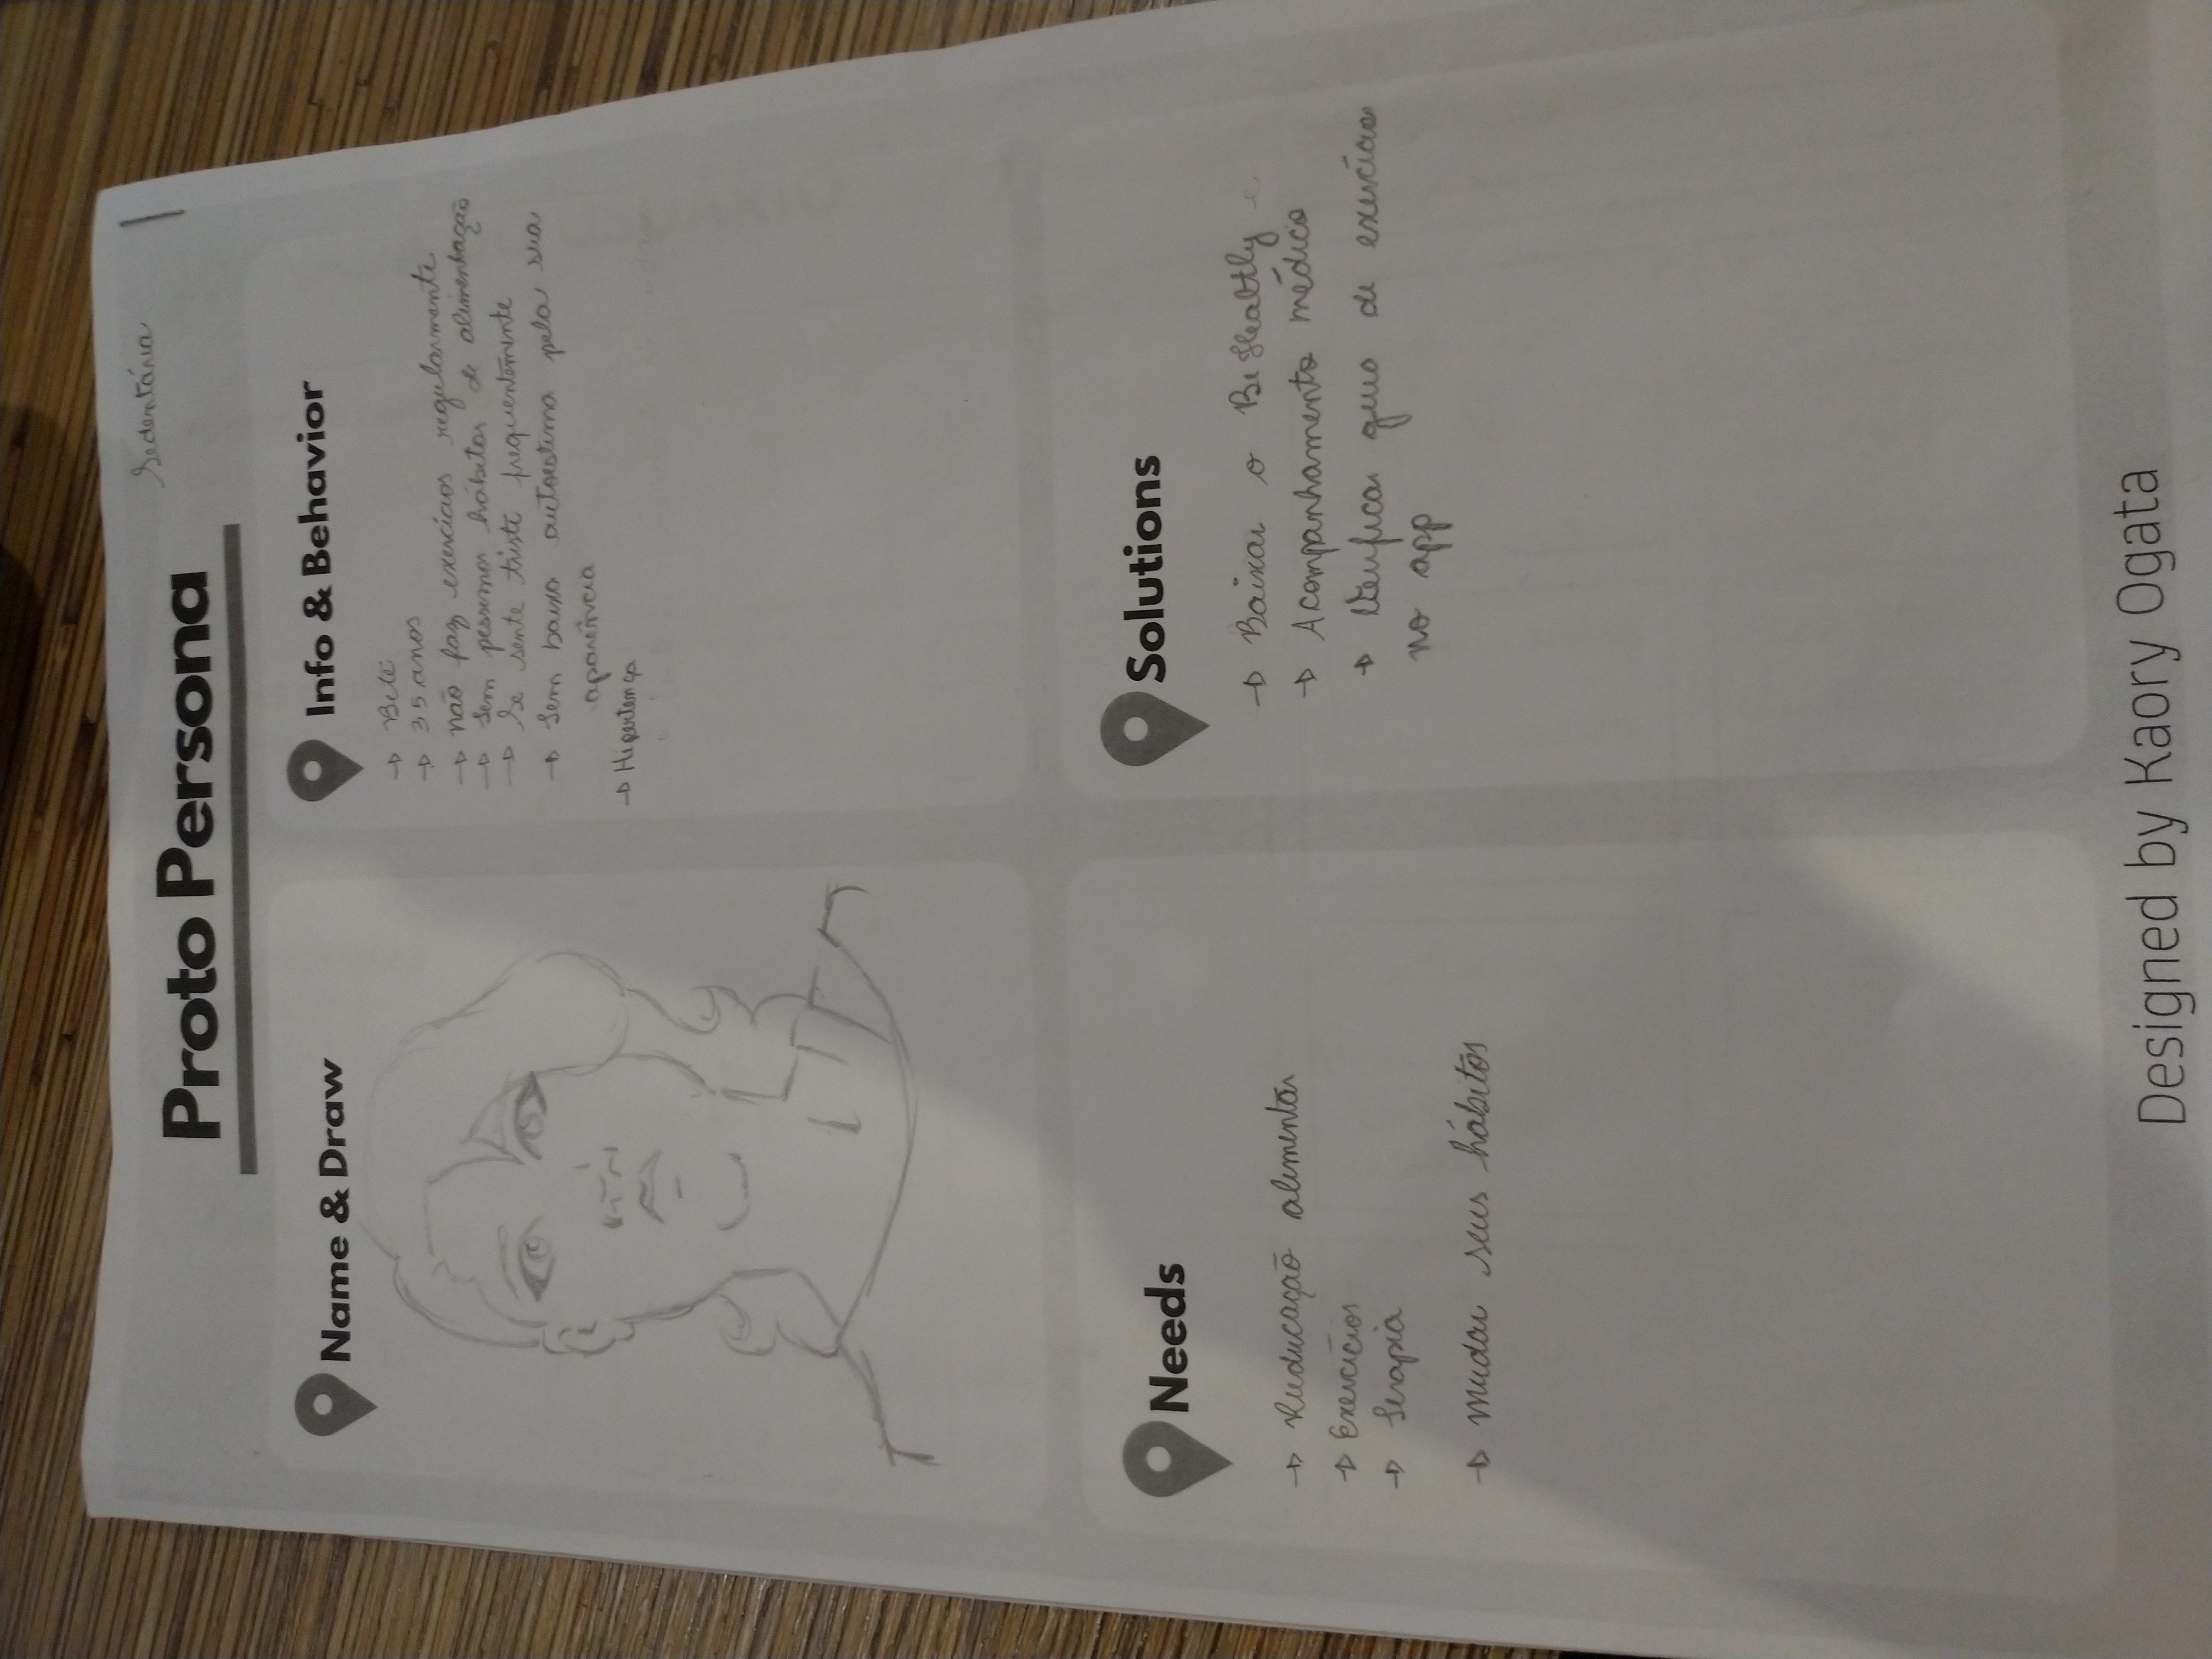 Sedentária
Proto Persona
Name & Draw
Info & Behavior
→ Bete
→ 35 anos
→ não faz exercícios regularmente
→ Tem pessimos hábitos de alimentação
→ Se sente triste frequentemente
→ Tem baixa autoestima pela sua
aparência
→ Hipertença
Needs
→ Reeducação alimentar
→ Exercícios
→ Terapia
→ mudar seus hábitos
Solutions
→ Baixar o BeHealtly
→ Acompanhamento médico
→ Verificar guia de exercícios
no app
Designed by Kaory Ogata